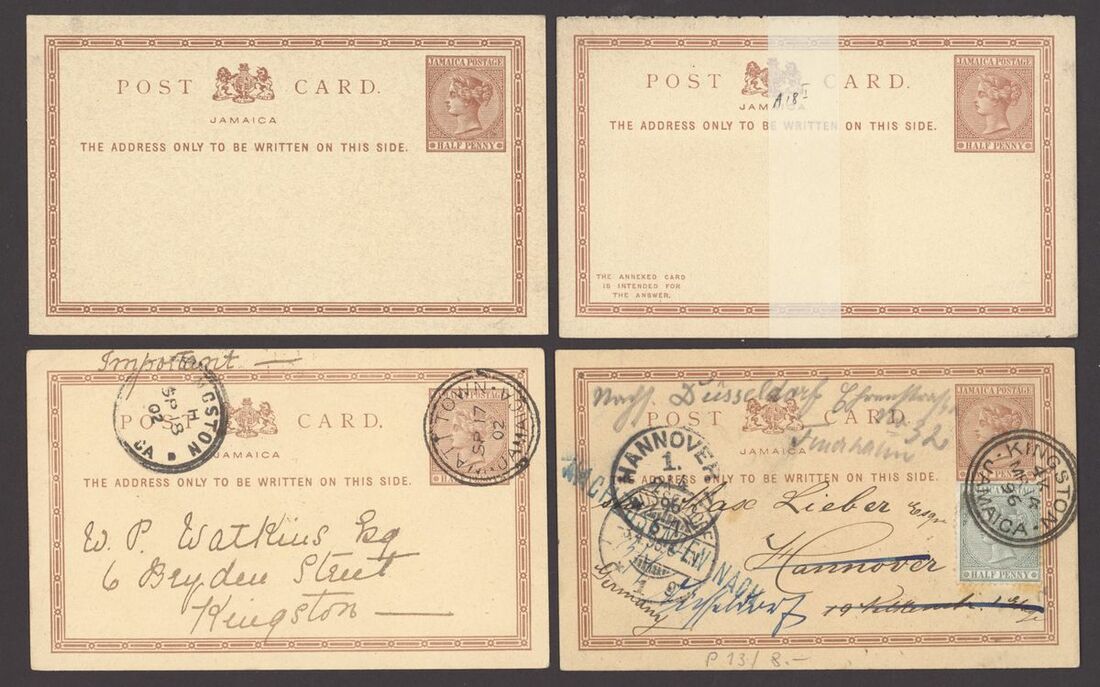 POST CARD.
JAMAICA
THE ADDRESS ONLY TO BE WRITTEN ON THIS SIDE.
JAMAICA POSTAGE
HALF PENNY
POST CARD.
JAMAICA
A18
THE ADDRESS ONLY TO BE WRITTEN ON THIS SIDE.
JAMAICA POSTAGE
HALF PENNY
THE ANNEXED CARD
IS INTENDED FOR
THE ANSWER.
Important
CARD.
JAMAICA
THE ADDRESS ONLY TO BE WRITTEN ON THIS SIDE.
SP 18
02
SP 17
02
JAMAICA
W. P. Watkins Esq
6 Bryden Street
Kingston
Nach. Düsseldorf
32
POST CARD.
JAMAICA
JAMAICA POSTAGE
ADDRESS ONLY TO BE WRITTEN ON THIS SIDE.
HANNOVER
1.
KINGSTON
JAMAICA
96
Max Lieber Esqre
Hannover
Germany
Düsseldorf
HALF PENNY
P 13/ 8.-